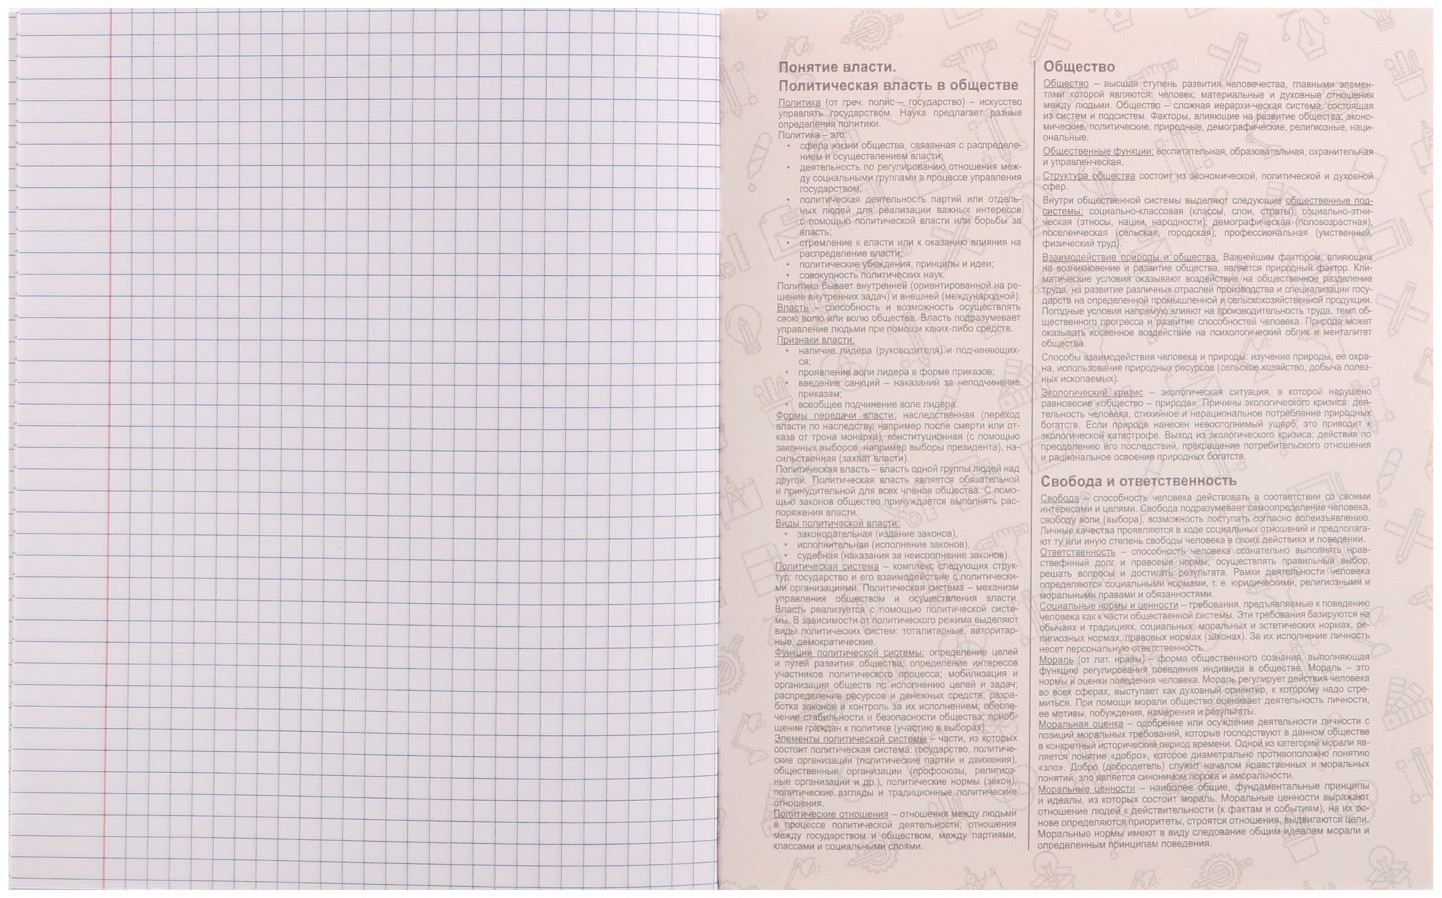 Понятие власти.
Политическая власть в обществе
Политика (от греч. полис – государство) – искусство
управлять государством. Наука предлагает разные
определения политики.
Политика – это:
• сфера жизни общества, связанная с распределе-
нием и осуществлением власти;
• деятельность по регулированию отношения меж-
ду социальными группами в процессе управления
государством;
• политическая деятельность партий или отдель-
ных людей для реализации важных интересов
с помощью политической власти или борьбы за
власть;
• стремление к власти или к оказанию влияния на
распределение власти;
• политические убеждения, принципы и идеи;
• совокупность политических наук.
Политика бывает внутренней (ориентированной на ре-
шение внутренних задач) и внешней (международной).
Власть – способность и возможность осуществлять
свою волю или волю общества. Власть подразумевает
управление людьми при помощи каких-либо средств.
Признаки власти:
• наличие лидера (руководителя) и подчиняющих-
ся;
• проявление воли лидера в форме приказов;
• введение санкций – наказаний за неподчинение
приказам;
• всеобщее подчинение воле лидера.
Формы передачи власти: наследственная (переход
власти по наследству, например после смерти или от-
каза от трона монарха), конституционная (с помощью
законных выборов, например выборы президента), на-
сильственная (захват власти).
Политическая власть – власть одной группы людей над
другой. Политическая власть является обязательной
и принудительной для всех членов общества. С помо-
щью законов общество принуждается выполнять рас-
поряжения власти.
Виды политической власти:
• законодательная (издание законов),
• исполнительная (исполнение законов),
• судебная (наказания за неисполнение законов).
Политическая система – комплекс следующих струк-
тур: государство и его взаимодействие с политически-
ми организациями. Политическая система – механизм
управления обществом и осуществления власти.
Власть реализуется с помощью политической систе-
мы. В зависимости от политического режима выделяют
виды политических систем: тоталитарные, авторитар-
ные, демократические.
Функции политической системы: определение целей
и путей развития общества; определение интересов
участников политического процесса; мобилизация и
организация обществ по исполнению целей и задач;
распределение ресурсов и денежных средств; разра-
ботка законов и контроль за их исполнением; обеспе-
чение стабильности и безопасности общества; приоб-
щение граждан к политике (участию в выборах).
Элементы политической системы – части, из которых
состоит политическая система: государство, политиче-
ские организации (политические партии и движения),
общественные организации (профсоюзы, религиоз-
ные организации и др.), политические нормы (закон),
политические взгляды и традиционные политические
отношения.
Политические отношения – отношения между людьми
в процессе политической деятельности; отношения
между государством и обществом, между партиями,
классами и социальными слоями.
Общество
Общество – высшая ступень развития человечества, главными элемен-
тами которой являются: человек, материальные и духовные отношения
между людьми. Общество – сложная иерархи-ческая система, состоящая
из систем и подсистем. Факторы, влияющие на развитие общества: эконо-
мические, политические, природные, демографические, религиозные, наци-
ональные.
Общественные функции: воспитательная, образовательная, охранительная
и управленческая.
Структура общества состоит из экономической, политической и духовной
сфер.
Внутри общественной системы выделяют следующие общественные под-
системы: социально-классовая (классы, слои, страты); социально-этни-
ческая (этносы, нации, народности); демографическая (половозрастная),
поселенческая (сельская, городская); профессиональная (умственный,
физический труд).
Взаимодействие природы и общества. Важнейшим фактором, влияющим
на возникновение и развитие общества, является природный фактор. Кли-
матические условия оказывают воздействие на общественное разделение
труда, на развитие различных отраслей производства и специализации госу-
дарств на определенной промышленной и сельскохозяйственной продукции.
Погодные условия напрямую влияют на производительность труда, темп об-
щественного прогресса и развитие способностей человека. Природа может
оказывать косвенное воздействие на психологический облик и менталитет
общества.
Способы взаимодействия человека и природы: изучение природы, её охра-
на, использование природных ресурсов (сельское хозяйство, добыча полез-
ных ископаемых).
Экологический кризис – экологическая ситуация, в которой нарушено
равновесие «общество – природа». Причины экологического кризиса: дея-
тельность человека, стихийное и нерациональное потребление природных
богатств. Если природе нанесен невосполнимый ущерб, это приводит к
экологической катастрофе. Выход из экологического кризиса: действия по
преодолению его последствий, прекращение потребительского отношения
и рациональное освоение природных богатств.
Свобода и ответственность
Свобода – способность человека действовать в соответствии со своими
интересами и целями. Свобода подразумевает самоопределение человека,
свободу воли (выбора), возможность поступать согласно волеизъявлению.
Личные качества проявляются в ходе социальных отношений и предполага-
ют ту или иную степень свободы человека в своих действиях и поведении.
Ответственность – способность человека сознательно выполнять нрав-
ственный долг и правовые нормы, осуществлять правильный выбор,
решать вопросы и достигать результата. Рамки деятельности человека
определяются социальными нормами, т. е. юридическими, религиозными и
моральными правами и обязанностями.
Социальные нормы и ценности – требования, предъявляемые к поведению
человека как к части общественной системы. Эти требования базируются на
обычаях и традициях, социальных, моральных и эстетических нормах, ре-
лигиозных нормах, правовых нормах (законах). За их исполнение личность
несет персональную ответственность.
Мораль (от лат. нравы) – форма общественного сознания, выполняющая
функцию регулирования поведения индивида в обществе. Мораль – это
нормы и оценки поведения человека. Мораль регулирует действия человека
во всех сферах, выступает как духовный ориентир, к которому надо стре-
миться. При помощи морали общество оценивает деятельность личности,
ее мотивы, побуждения, намерения и результаты.
Моральная оценка – одобрение или осуждение деятельности личности с
позиций моральных требований, которые господствуют в данном обществе
в конкретный исторический период времени. Одной из категорий морали яв-
ляется понятие «добро», которое диаметрально противоположно понятию
«зло». Добро (добродетель) служит началом нравственных и моральных
понятий, зло является синонимом порока и аморальности.
Моральные ценности – наиболее общие, фундаментальные принципы
и идеалы, из которых состоит мораль. Моральные ценности выражают
отношение людей к действительности (к фактам и событиям), на их ос-
нове определяются приоритеты, строятся отношения, выдвигаются цели.
Моральные нормы имеют в виду следование общим идеалам морали и
определенным принципам поведения.